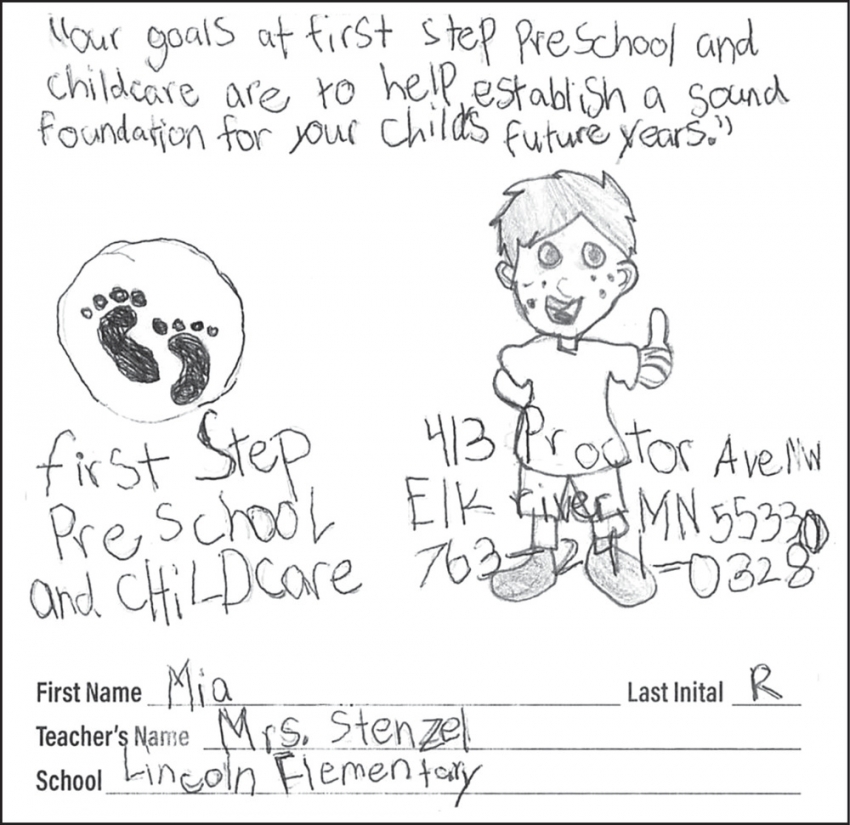 "Our goals at first step Preschool and
childcare are to help establish a sound
foundation for your childs future years."
first Step
PreSchool
and CHiLDcare
413 Proctor Ave NW
Elk river, MN 55330
763-241-0328
First Name Mia Last Inital R
Teacher's Name Mrs. Stenzel
School Lincoln Elementary